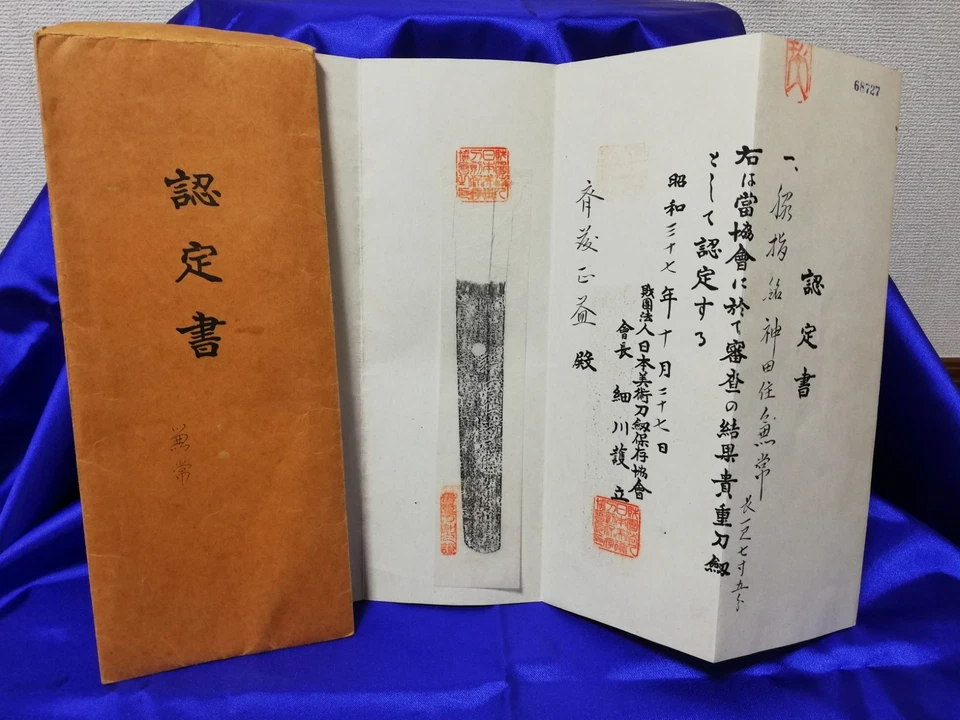 認定書
兼常
68727
認定書
一、脇指 銘 神田住兼常 長一尺七寸五分
右は當協會に於て審査の結果貴重刀劔
として認定する
昭和三十七年十月二十七日
財團法人日本美術刀劔保存協會
會長 細川護立
正益 殿